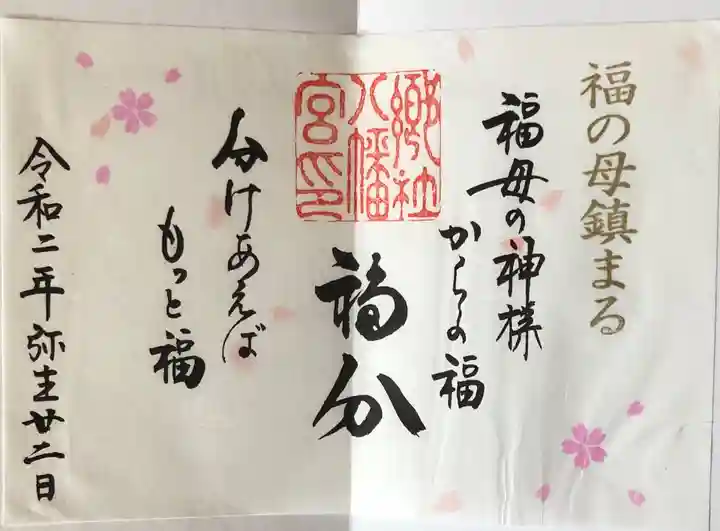 福の母鎮まる
福母の神様
からの福
郷社
八幡
宮印
福分
分けあえば
もっと福
令和二年弥生廿二日